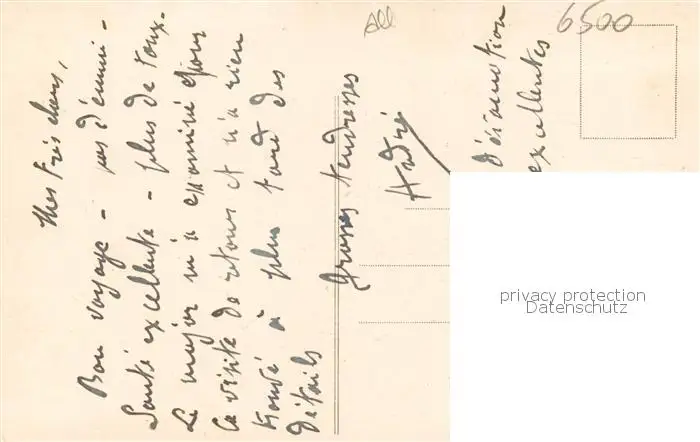 Mes très chers,
Bon voyage - pas d'ennui -
Santé excellente - plus de toux.
Le major m'a examiné pour
la visite de retour et n'a rien
trouvé à plus tard des
détails
grosses tendresses
André
excellentes
All
6500
privacy protection
Datenschutz